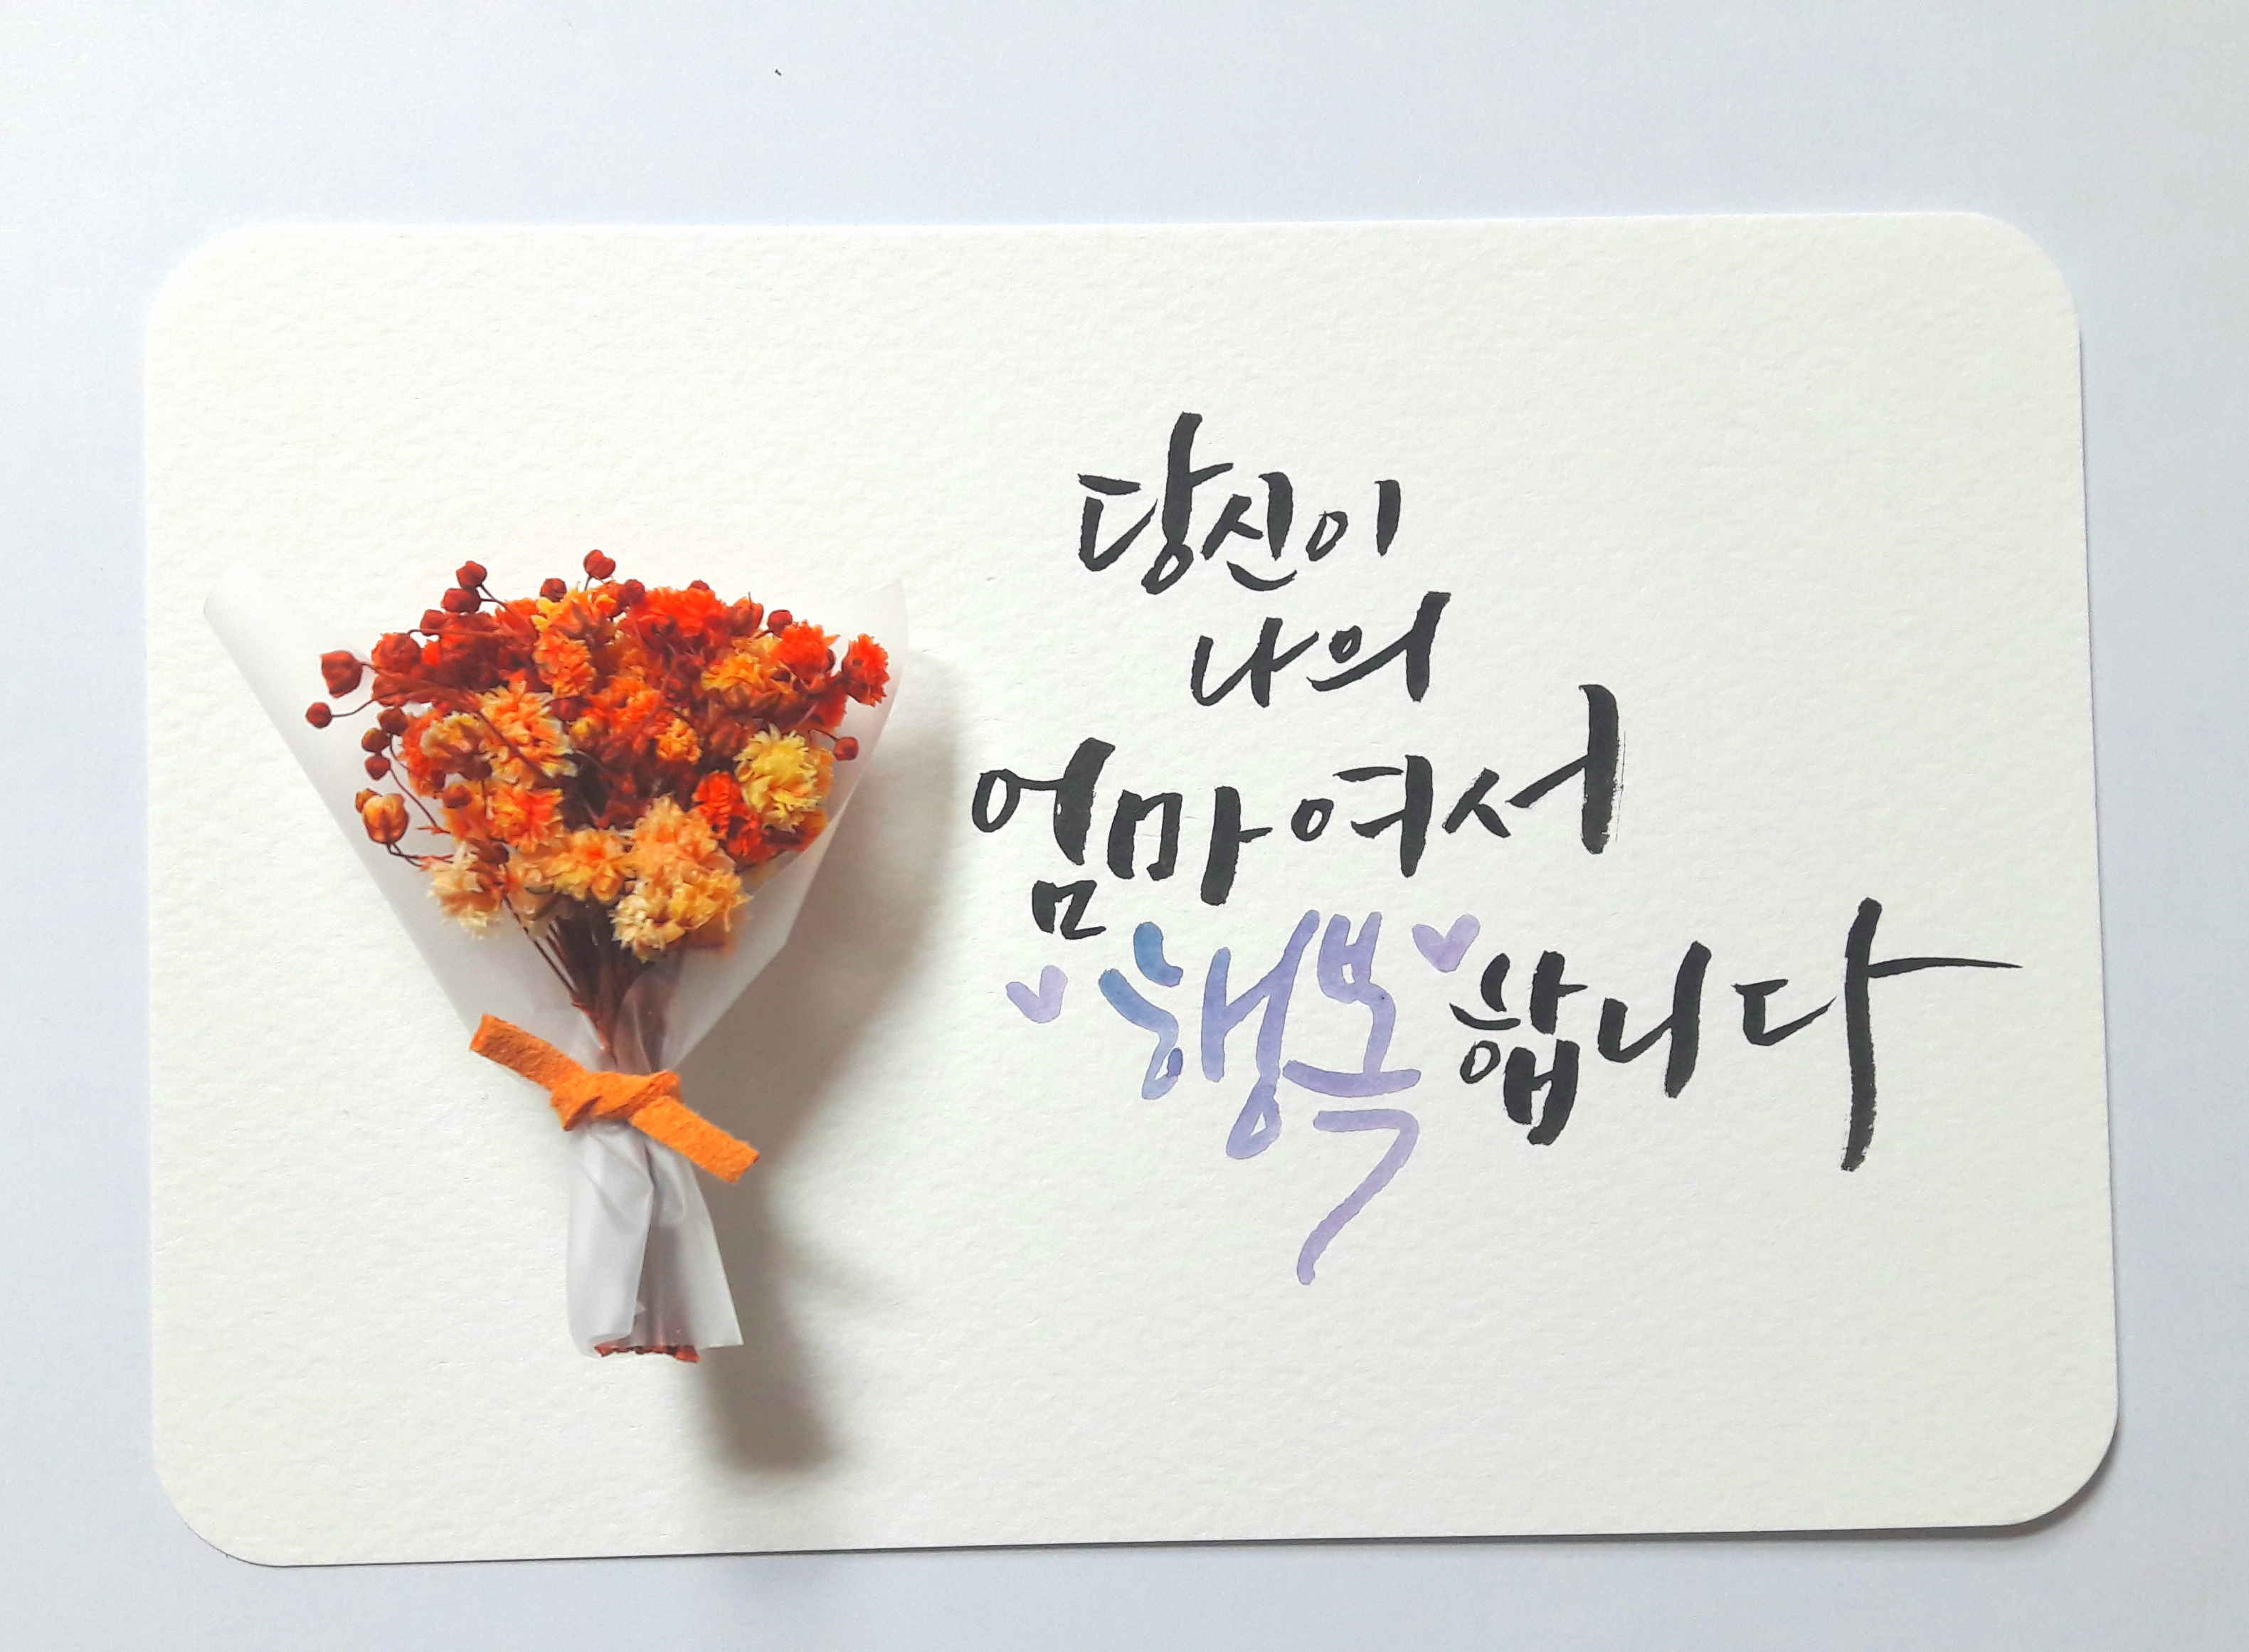 당신이
나의
엄마여서
행복합니다